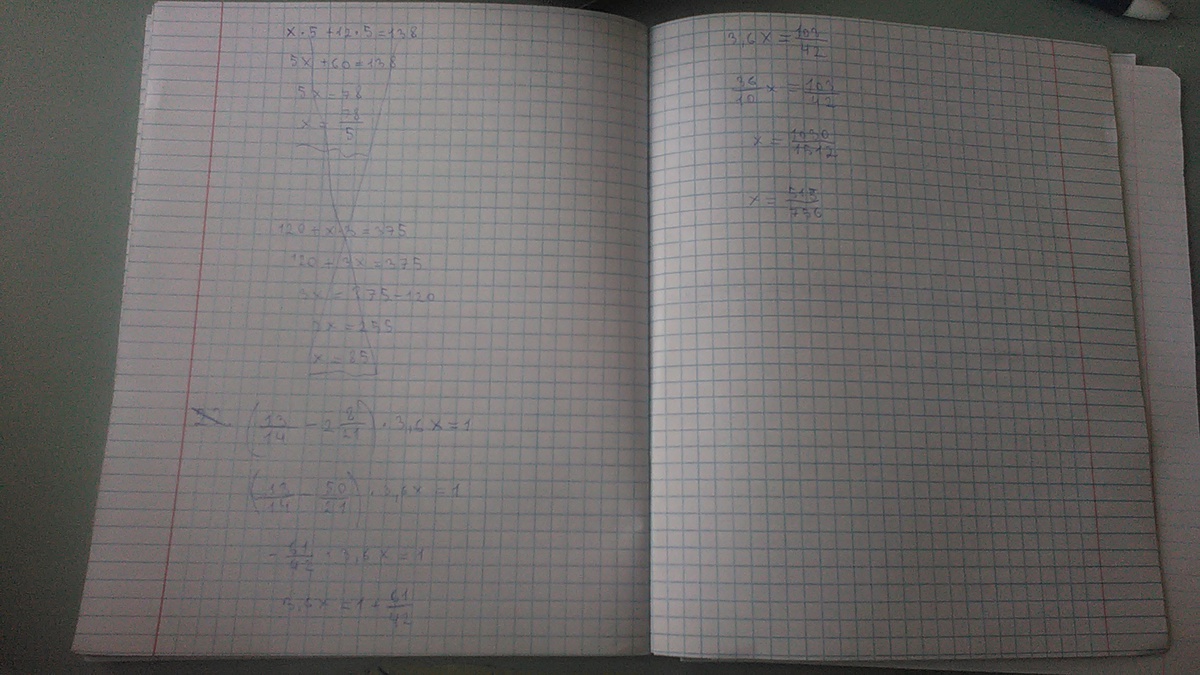 x·5+12·5=138
5x+60=138
5x=78
x=78/5
120+x·3=375
120+3x=375
3x=375-120
3x=255
x=85
(13/14-2 8/21)·3,6x=1
(13/14-50/21)·3,6x=1
-61/42·3,6x=1
3,6x=1+61/42
3,6x=103/42
36/10x=103/42
x=1030/1512
x=515/756